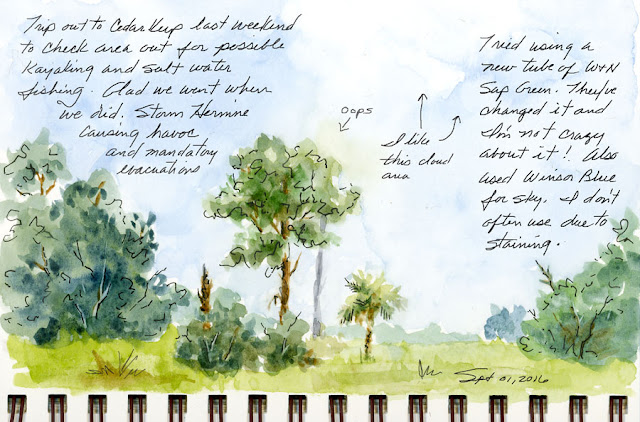 Trip out to Cedar Keys last weekend
to check area out for possible
Kayaking and salt water
fishing. Glad we went when
we did. Storm Hermine
causing havoc
and mandatory
evacuations
oops
I like
this cloud
area
Tried using a
new tube of W+N
Sap Green. They've
changed it and
I'm not crazy
about it! Also
used Winsor Blue
for sky. I don't
often use due to
staining.
Sept 01, 2016